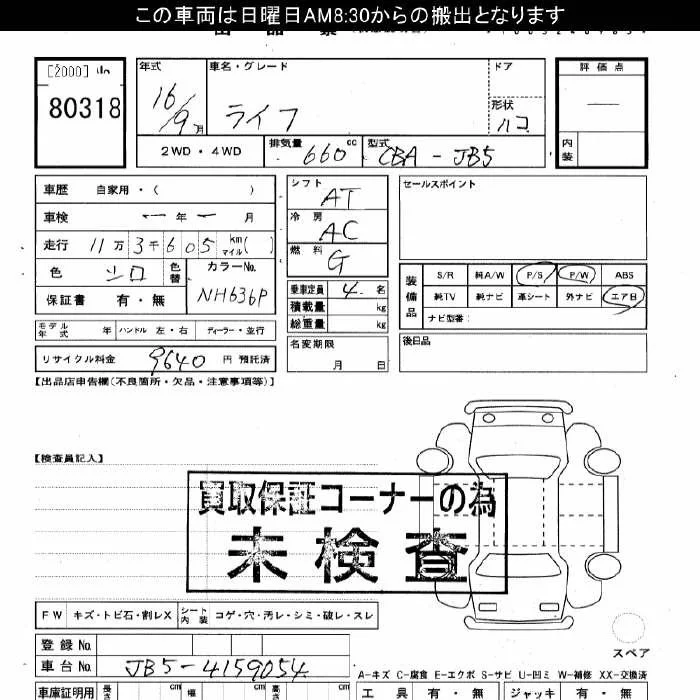 この車両は日曜日AM8:30からの搬出となります
[2000]
80318
年式 車名・グレード ドア 評価点
16/9月 ライフ 形状 ハコ
2WD・4WD 排気量 660cc 型式 CBA-JB5 内装
車歴 自家用・( )
車検 ー年ー月
走行 11万3千605 km マイル( )
色 シロ 色替 カラーNo. NH636P
保証書 有・無
シフト AT
冷房 AC
燃料 G
乗車定員 4名
積載量 kg
総重量 kg
セールスポイント
装備品 S/R 純A/W P/S P/W ABS
純TV 純ナビ 革シート 外ナビ エアB
ナビ型番:
モデル年式 年 ハンドル 左・右 ディーラー・並行
名変期限 月 日
後日品
リサイクル料金 9640 円 預託済
【出品店申告欄(不良箇所・欠品・注意事項等)】
【検査員記入】
買取保証コーナーの為
未検査
FW キズ・トビ石・割レX シート内装 コゲ・穴・汚レ・シミ・破レ・スレ
スペア
登録No.
車台No. JB5-4159054
A-キズ C-腐食 E-エクボ S-サビ U-凹ミ W-補修 XX-交換済
車庫証明用 長さ cm 幅 cm 高さ cm 工具 有・無 ジャッキ 有・無